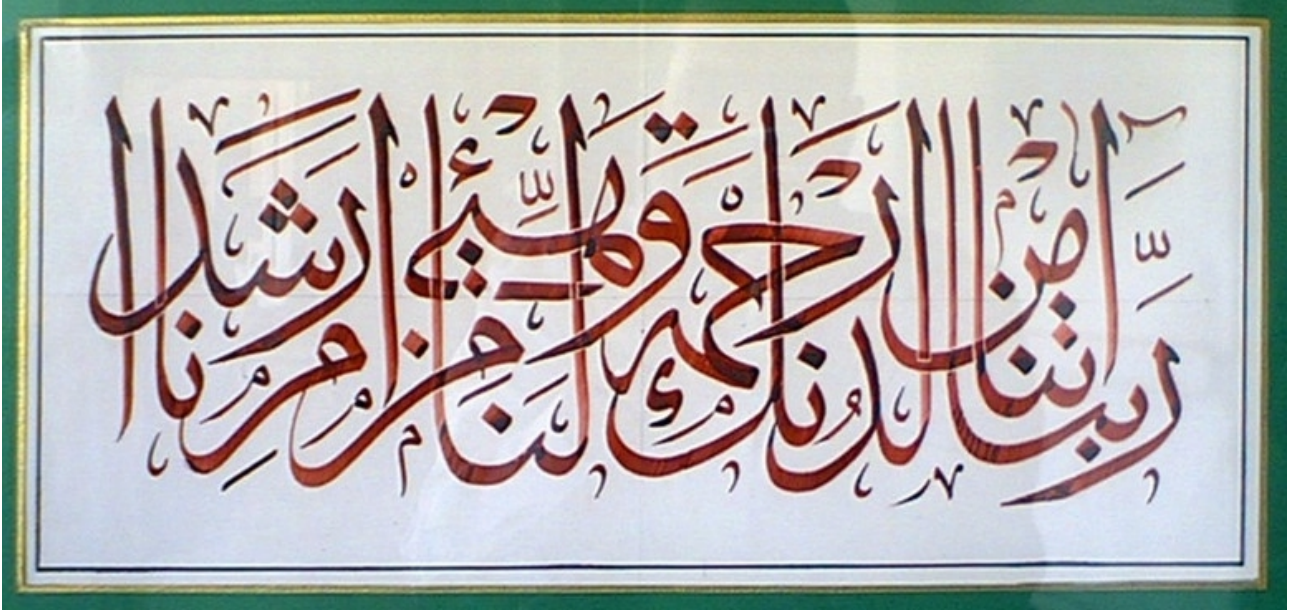 رَبَّنَا آتِنَا مِن لَّدُنكَ رَحْمَةً وَهَيِّئْ لَنَا مِنْ أَمْرِنَا رَشَدًا